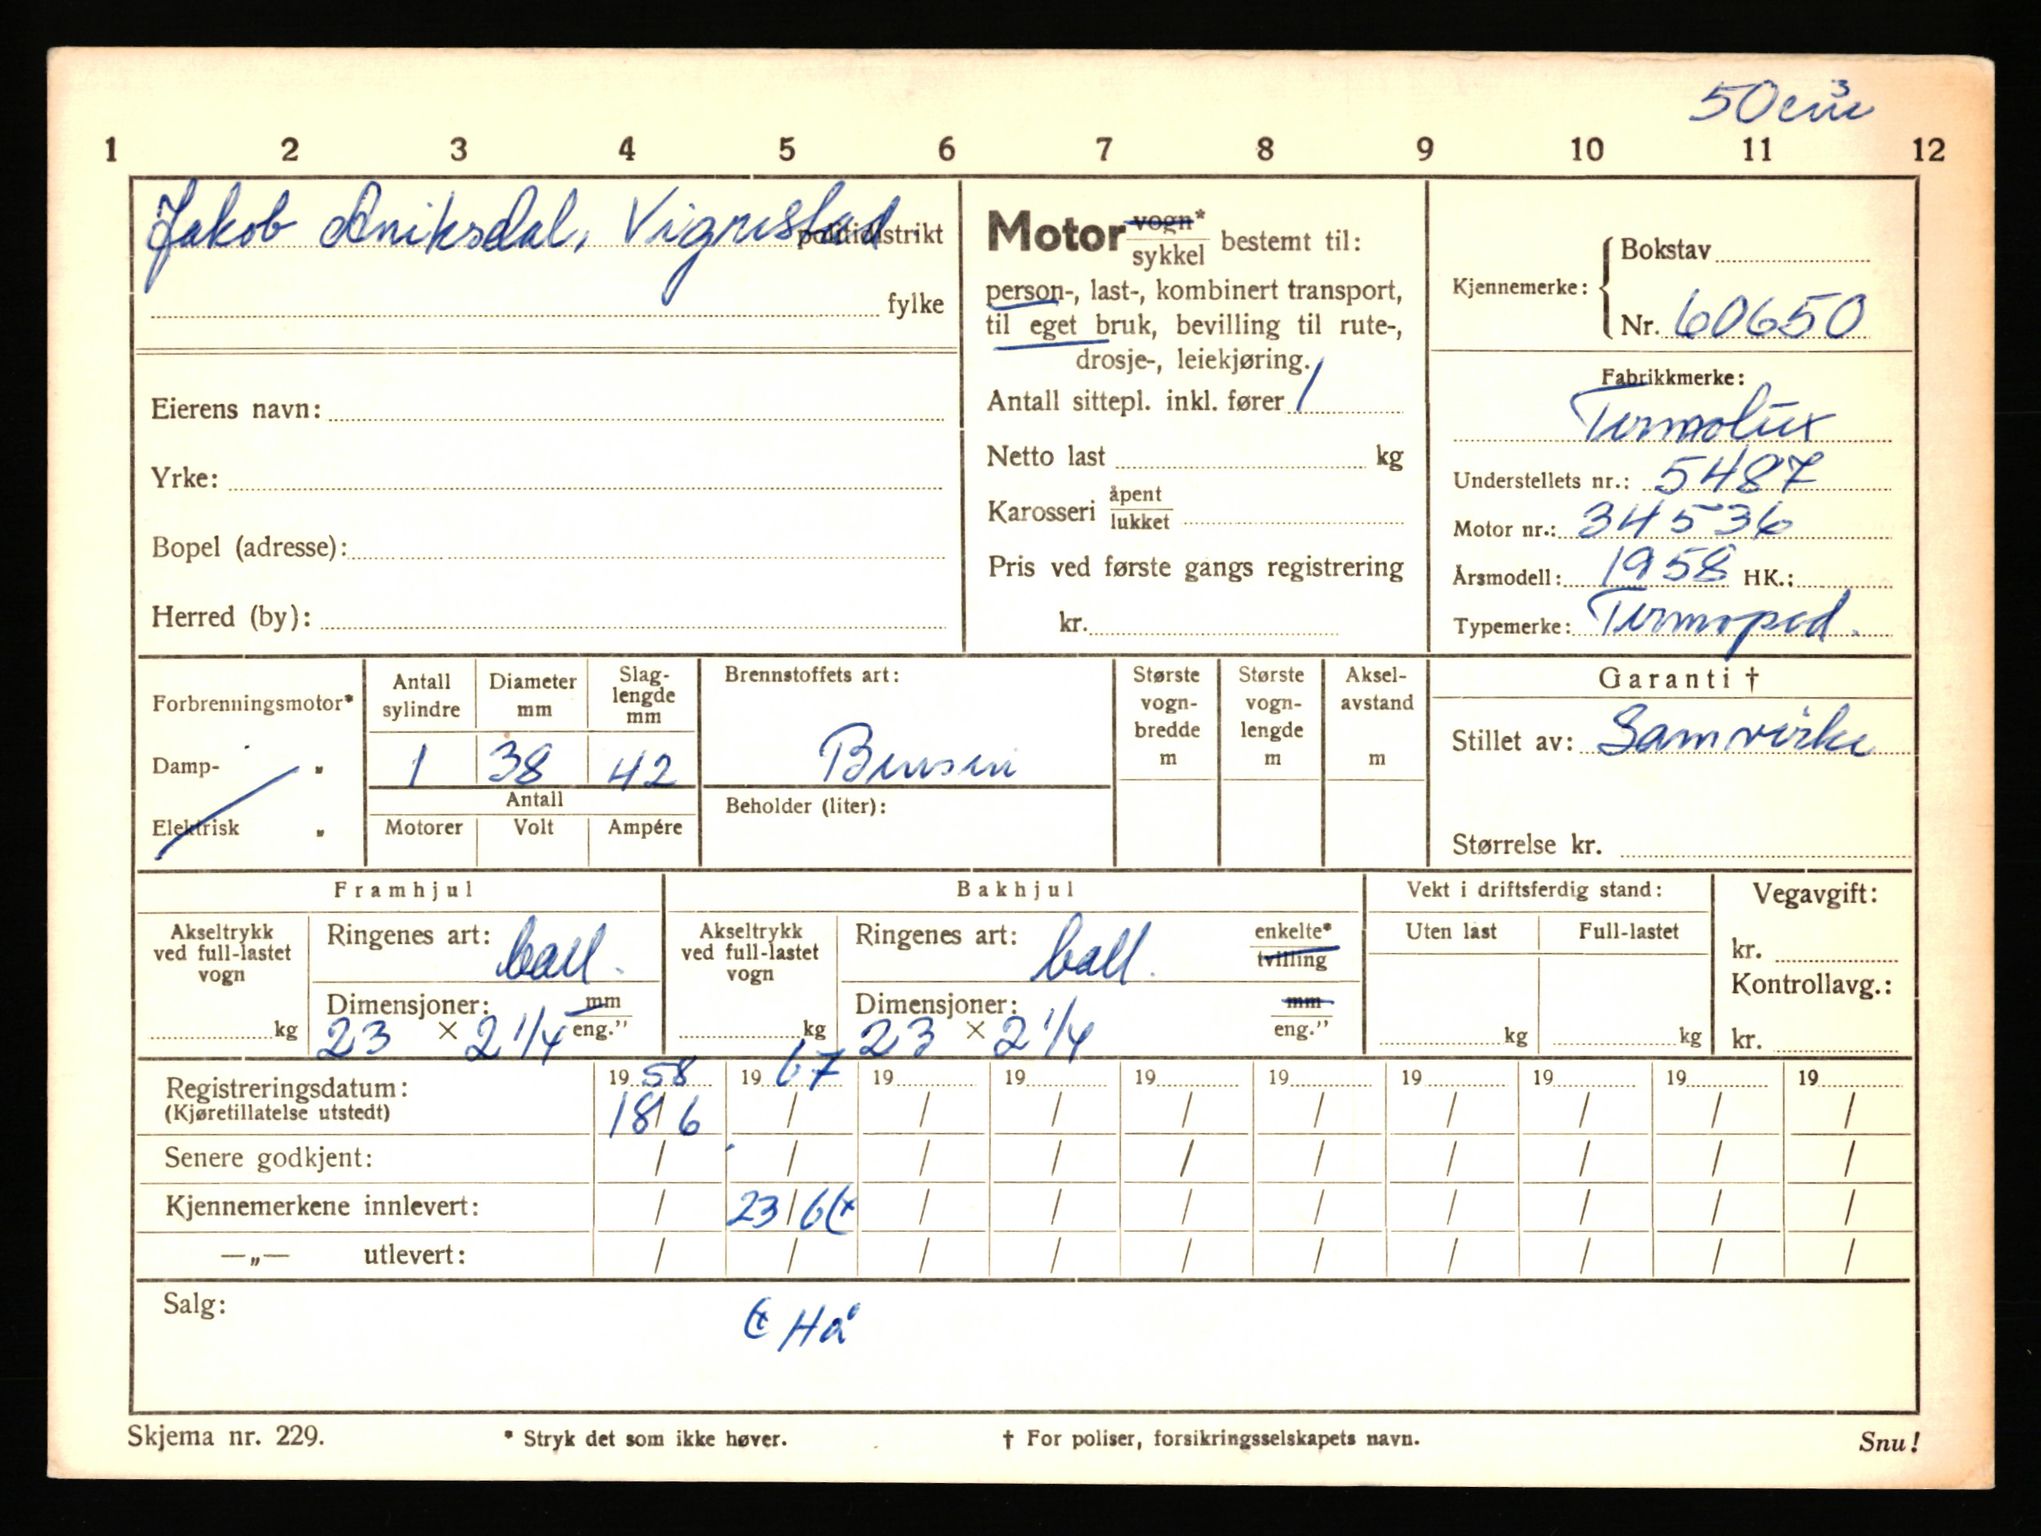 50 cm³
1 2 3 4 5 6 7 8 9 10 11 12
Jakob Aniksdal, Vigrestad politidistrikt
fylke
Eierens navn:
Yrke:
Bopel (adresse):
Herred (by):
Motor vogn* sykkel bestemt til:
person-, last-, kombinert transport,
til eget bruk, bevilling til rute-,
drosje-, leiekjøring.
Antall sittepl. inkl. fører 1
Netto last kg
Karosseri åpent lukket
Pris ved første gangs registrering
kr.
Kjennemerke: Bokstav
Nr. 60650
Fabrikkmerke:
Termolux
Understellets nr.: 5487
Motor nr.: 34536
Årsmodell: 1958 HK.:
Typemerke: Termoped.
Forbrenningsmotor*
Damp- „
Elektrisk „
Antall sylindre
Diameter mm
Slaglengde mm
1 38 42
Antall
Motorer Volt Ampére
Brennstoffets art:
Bensin
Beholder (liter):
Største vogn-bredde m
Største vogn-lengde m
Aksel-avstand m
Garanti †
Stillet av: Samvirke
Størrelse kr.
Framhjul
Akseltrykk ved full-lastet vogn
kg
Ringenes art: ball.
Dimensjoner: mm
23 × 2 1/4 eng."
Bakhjul
Akseltrykk ved full-lastet vogn
kg
Ringenes art: ball. enkelte* tvilling
Dimensjoner: mm
23 × 2 1/4 eng."
Vekt i driftsferdig stand:
Uten last Full-lastet
kg kg
Vegavgift:
kr.
Kontrollavg.:
kr.
Registreringsdatum: 1958 1967 19 19 19 19 19 19 19 19
(Kjøretillatelse utstedt) 18/6 / / / / / / / / /
Senere godkjent: / / / / / / / / / /
Kjennemerkene innlevert: / 23/6 / / / / / / / /
—„— utlevert: / / / / / / / / / /
Salg:
Hå
Skjema nr. 229.
* Stryk det som ikke høver.
† For poliser, forsikringsselskapets navn.
Snu!